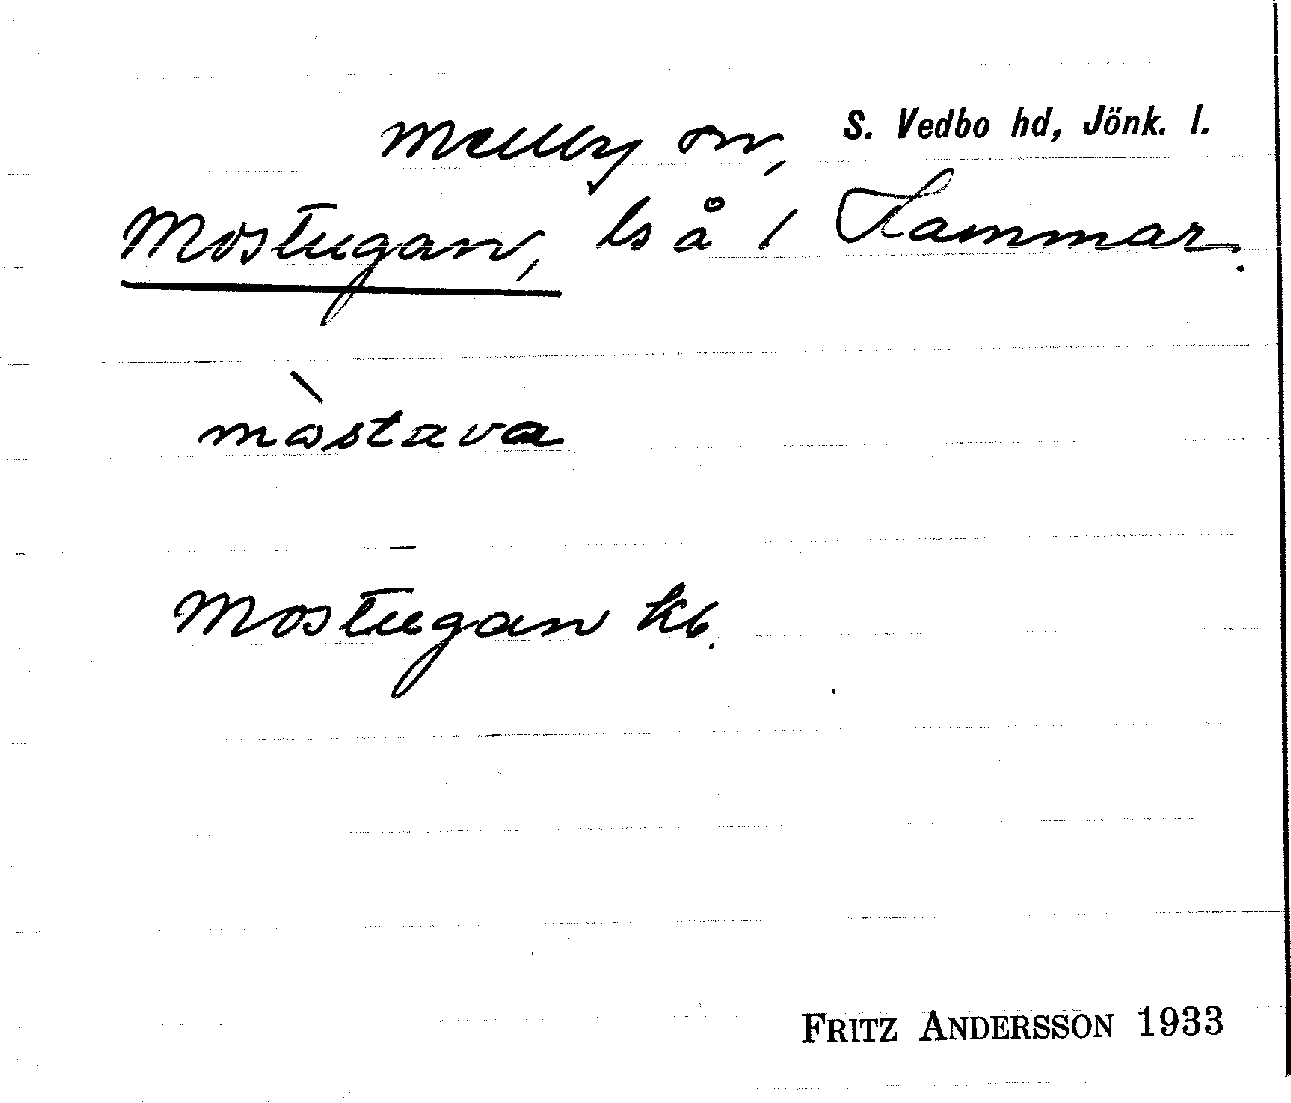 Mellby sn, S. Vedbo hd, Jönk. l.
Mostugan, ls å 1 Hammar.
mòstava
Mostugan kb.
FRITZ ANDERSSON 1933